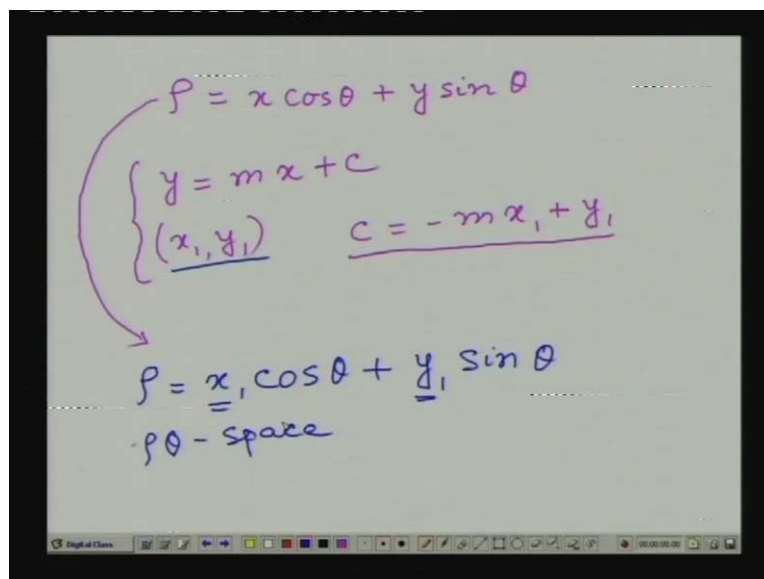 ρ = x cosθ + y sin θ
y = mx + c
(x₁, y₁)    c = -mx₁ + y₁
ρ = x₁ cosθ + y₁ sin θ
ρθ - space
Digital Class 00:00:00.00